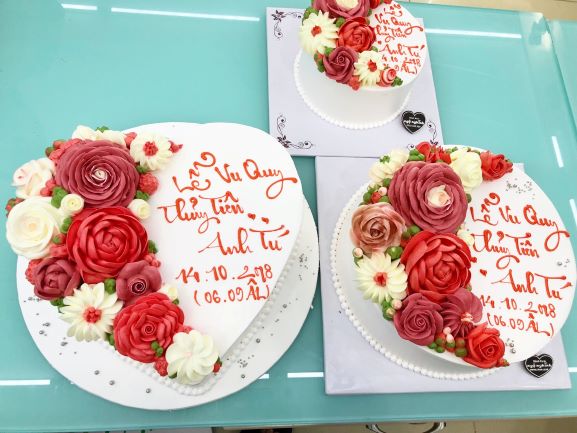 Lễ Vu Quy
Thủy Tiên
Anh Tú
14.10.2018
(06.09ÂL)
Lễ Vu Quy
Thủy Tiên
Anh Tú
14.10.2018
(06.09ÂL)
Lễ Vu Quy
Thủy Tiên
Anh Tú
14.10.2018
(06.09ÂL)